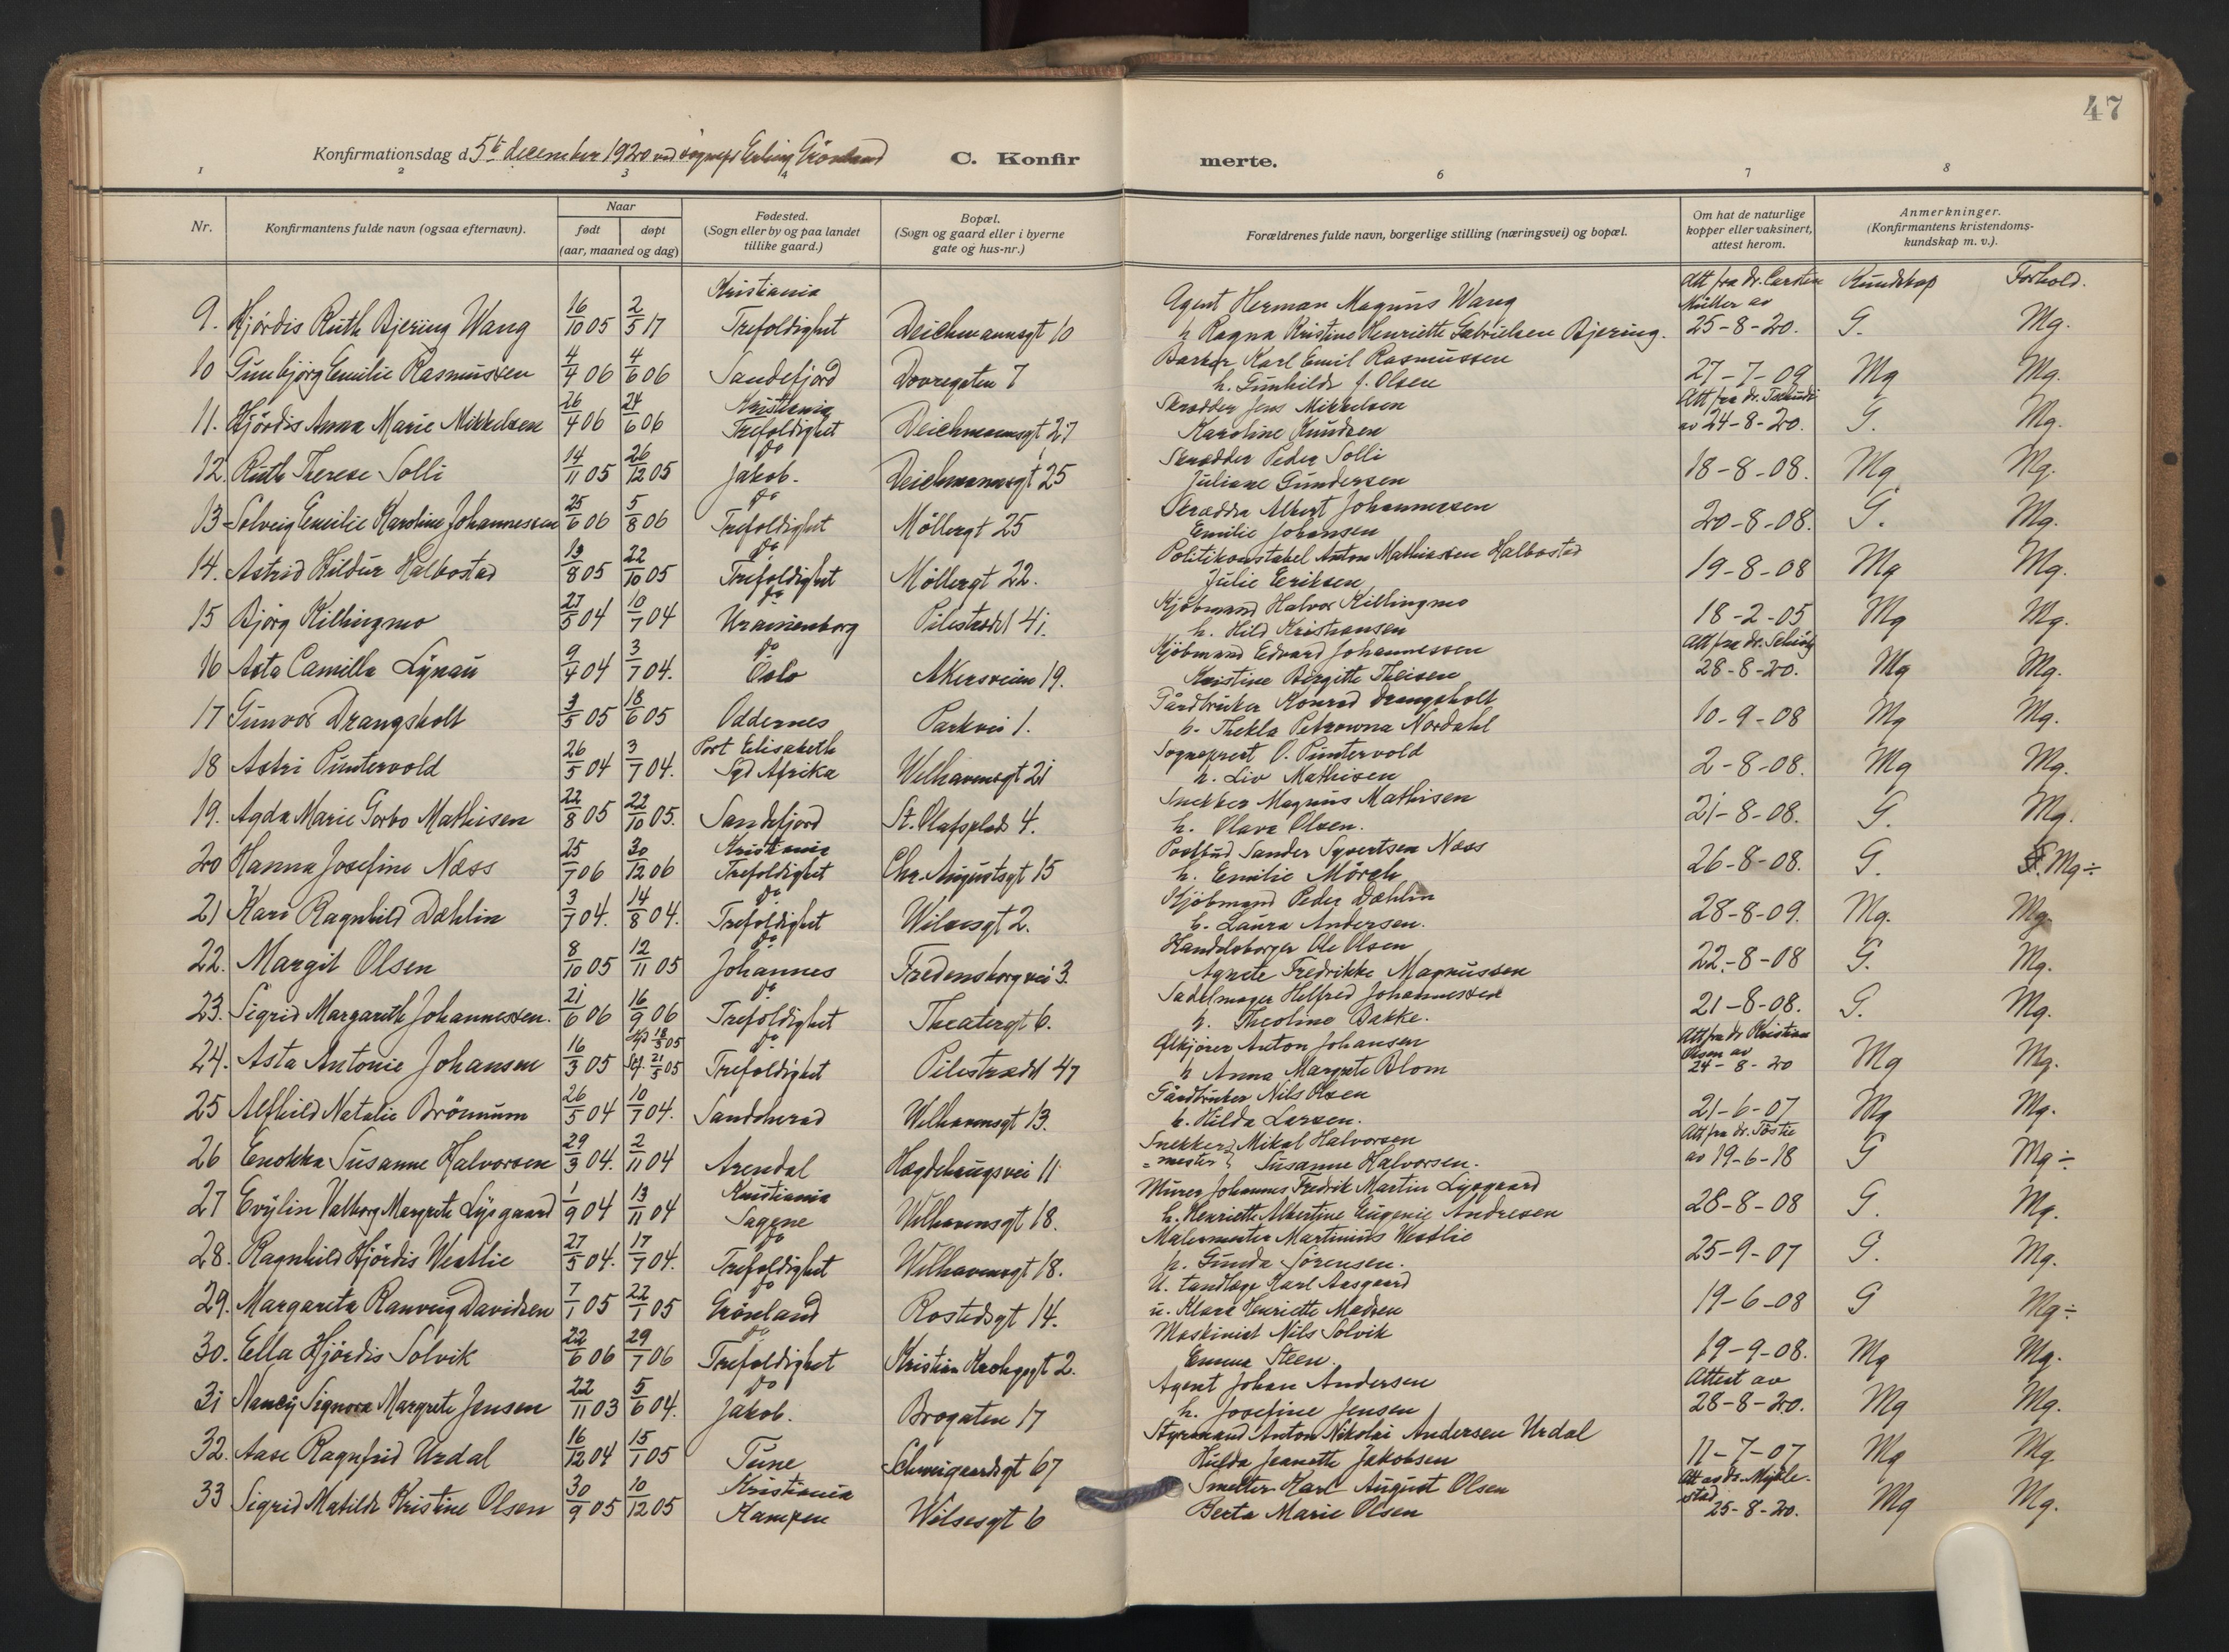 47
Konfirmationsdag d. 5te december 1920 ved sognepr. Erling Grönland
C. Konfirmerte.
1 2 3 4 6 7 8
Nr.
Konfirmantens fulde navn (ogsaa efternavn).
Naar
født
døpt
(aar, maaned og dag)
Fødested.
(Sogn eller by og paa landet
tillike gaard.)
Bopæl.
(Sogn og gaard eller i byerne
gate og hus-nr.)
Forældrenes fulde navn, borgerlige stilling (næringsvei) og bopæl.
Om hat de naturlige
kopper eller vaksinert,
attest herom.
Anmerkninger.
(Konfirmantens kristendoms-
kundskap m. v.).
Kristiania Agent Herman Magnus Wang Att fra dr. Carsten Kundskap Forhold.
9. Hjördis Ruth Bjering Wang 16/10 05 2/5 17 Trefoldighet Deichmannsgt 10 h. Ragna Kristine Henriette Gabrielsen Bjering. Müller av 25-8-20. G. Mg.
Barber Karl Emil Rasmussen
10 Gunbjörg Emilie Rasmussen 4/4 06 4/6 06 Sandefjord Dovregaten 7 h. Gunhilde f. Olsen 27-7-09 Mg Mg.
Kristiania Skrædder Jens Mikkelsen Att fra dr. Tschudi
11. Hjördis Anna Marie Mikkelsen 26/4 06 24/6 06 Trefoldighet Deichmannsgt 27 Karoline Knudsen av 24-8-20. G. Mg.
do Skrædder Peder Solli
12. Ruth Therese Solli 14/11 05 26/12 05 Jakob. Deichmannsgt 25 Juliane Gundersen 18-8-08. Mg Mg.
do Skrædder Albert Johannessen
13 Solveig Emilie Karoline Johannessen 25/6 06 5/8 06 Trefoldighet Möllergt 25 Emilie Johansen 20-8-08. G. Mg.
do Politikonstabel Anton Mathiassen Halbostad
14. Astrid Hildur Halbostad 13/8 05 22/10 05 Trefoldighet Möllergt 22. Julie Eriksen 19-8-08 Mg Mg.
do Kjöbmand Halvor Killingmo
15 Björg Killingmo 27/5 04 10/7 04 Uranienborg Pilestrædet 41. h. Hild Kristiansen 18-2-05 Mg Mg.
do Kjöbmand Edvard Johannessen Att fra dr.
16 Asta Camilla Lynau 9/4 04 3/7 04. Oslo Akersveien 19. Kristine Birgitte Theisen 28-8-20. Mg Mg.
Gårdbruker Konrad Drangsholt
17 Gunvor Drangsholt 3/5 05 18/6 05 Oddernes Parkvei 1. h. Thekla Petrowna Nordahl 10-9-08 Mg Mg.
Port Elisabeth Sogneprest O. Puntervold
18 Astri Puntervold 26/5 04 3/7 04. Syd Afrika Welhavensgt 21 h. Liv Mathisen 2-8-08. Mg Mg.
Snekker Magnus Mathisen
19. Agda Marie Gorbo Mathisen 22/8 05 22/10 05. Sandefjord St. Olafsplads 4. h. Olava Olsen. 21-8-08. G. Mg.
Kristiania Postbud Sander Syvertsen Næss
20 Hanna Josefine Næss 25/7 06 30/12 06 Trefoldighet Chr. Augustsgt 15 h. Emilie Mörch 26-8-08. G. Mg÷
do Kjöbmand Peder Dæhlin
21 Kari Ragnhild Dæhlin 3/7 04. 14/8 04. Trefoldighet Wilsesgt 2. h. Laura Andersen. 28-8-09. Mg. Mg
do Handelsborger Ole Olsen
22. Margit Olsen 8/10 05 12/11 05 Johannes Fredensborgvei 3. Agnete Fredrikke Magnussen 22-8-08 G. Mg.
do Sadelmager Helfred Johannessen
23. Sigrid Margareth Johannessen. 21/6 06 16/9 06 Trefoldighet Theatergt 6. h. Theoline Bakke. 21-8-08. G. Mg.
18/3 05 do Ölkjörer Anton Johansen Att fra dr Kristian
24. Asta Antonie Johansen 16/3 05 21/5 05 Trefoldighet Pilestrædet 47 h Anna Margrete Blom Olsen av 24-8-20 Mg Mg.
Gårdbruker Nils Olsen
25 Alfhild Natalie Brönnum 26/5 04 10/7 04. Sandsherad Welhavensgt 13. h. Hilda Larsen. 21-6-07 Mg Mg.
Snekker- Mikal Halvorsen Att fra dr. Töstie
26 Enokka Susanne Halvorsen 29/3 04. 2/11 04 Arendal Hægdehaugsvei 11 mester Susanne Halvorsen. av 19-6-18 G Mg÷
Kristiania Murer Johannes Fredrik Martin Lysgaard
27 Evylin Valborg Margrete Lysgaard 1/9 04 13/11 04 Sagene Welhavensgt 18. h. Henriette Albertine Eugenie Andresen 28-8-08 G. Mg.
do Malermester Martinius Westlie
28. Ragnhild Hjördis Westlie 27/5 04. 17/7 04. Trefoldighet Welhavensgt 18. h. Gunda Sörensen. 25-9-07 G. Mg.
do U. tandlæge Karl Aasgaard
29. Margareta Ranveig Davidsen 7/1 05 22/1 05 Grönland Rostedsgt 14. u. Klara Henriette Madsen 19-6-08 G Mg÷
do Maskinist Nils Solvik
30. Ella Hjördis Solvik 22/6 06 29/7 06 Trefoldighet Kristian Krohgsgt 2. Emma Steen. 19-9-08. Mg Mg.
do Agent Johan Andersen Attest av
31 Nancy Signora Margrete Jensen 22/11 03 5/6 04. Jakob. Brogaten 17 h. Josefine Jensen 28-8-20. Mg Mg.
Styrmand Anton Nikolai Andersen Urdal
32. Aase Ragnfrid Urdal 16/12 04 15/1 05 Tune Schweigaardsgt 67 Hulda Jeanette Jakobsen 11-7-07 Mg Mg.
Kristiania Smelter Karl August Olsen Att av dr. Mykle-
33 Sigrid Matilde Kristine Olsen 30/9 05 10/12 05 Kampen Wilsesgt 6 Berta Marie Olsen stad 25-8-20. Mg Mg.